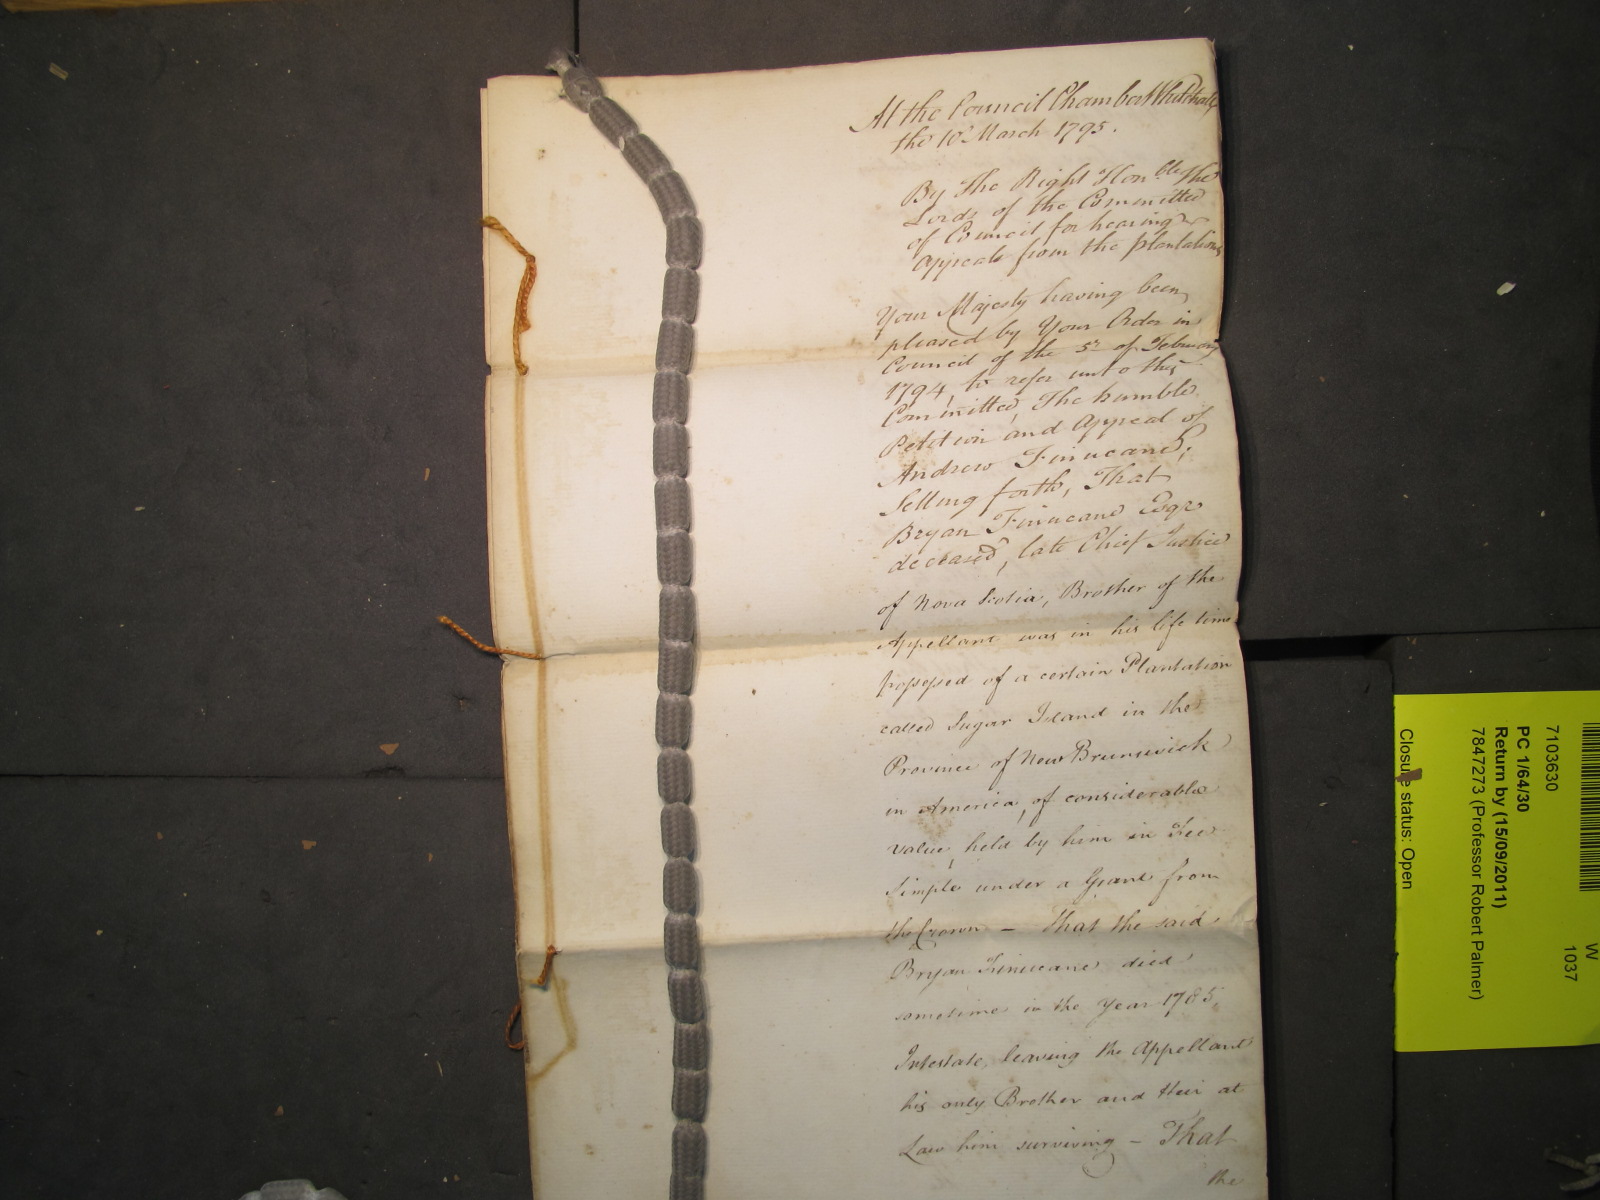 At the Council Chamber Whitehall
the 10th March 1795.
By The Right Hon.ble the
Lords of the Committee
of Council for hearing
Appeals from the plantations
Your Majesty having been
pleased by Your Order in
Council of the 5th of February
1794, to refer unto this
Committee, The humble
Petition and Appeal of
Andrew Finucane,
Setting forth, That
Bryan Finucane Esqr
deceased, late Chief Justice
of Nova Scotia, Brother of the
Appellant was in his life time
possessed of a certain Plantation
called Sugar Island in the
Province of New Brunswick
in America, of considerable
value, held by him in Fee
Simple under a Grant from
the Crown – That the said
Bryan Finucane died
sometime in the Year 1785,
Intestate, leaving the Appellant
his only Brother and Heir at
Law him surviving – That
the
W
1037
7103630
PC 1/64/30
Return by (15/09/2011)
7847273 (Professor Robert Palmer)
Closure status: Open